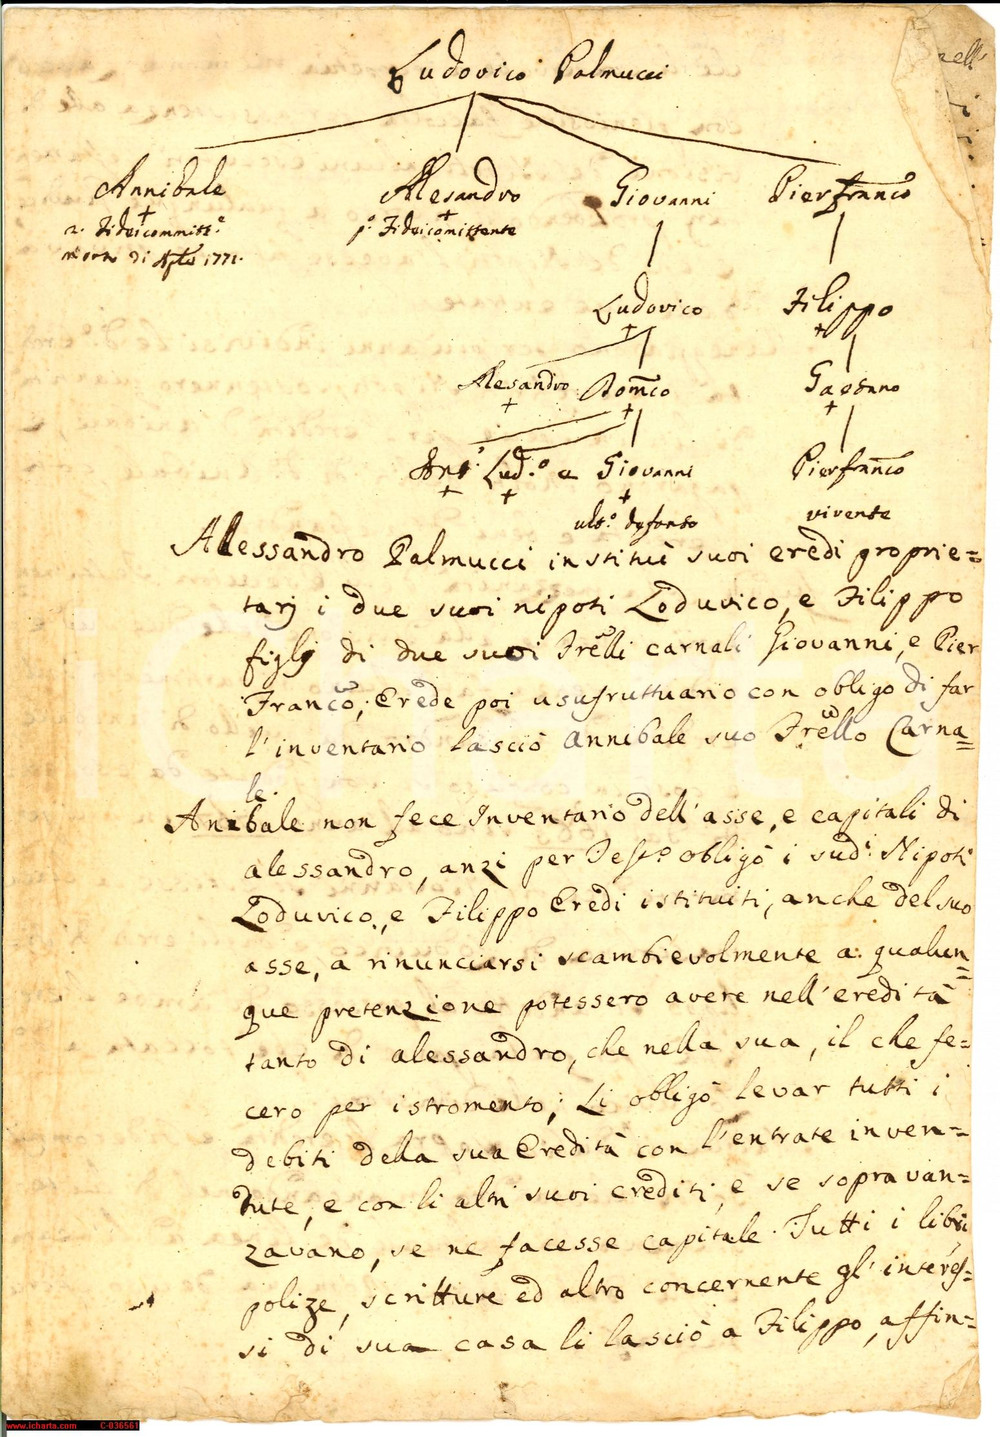 Ludovico Palmucci
Annibale Alesandro Giovanni Pierfranco
2. Fideicommitt.e p.o Fideicomittente
morto di Ag.to 1771.
Ludovico Filippo
Alesandro Dom̃co Gaetano
Lud.o e Giovanni Pierfran̄co
ult.o defonto vivente
Alessandro Palmucci instituì suoi eredi proprie=
tarj i due suoi nipoti Loduvico, e Filippo
figlj di due suoi Frēlli carnali Giovanni, e Pier
Franc̄o; Erede poi usufruttuario con obligo di far
l'inventario lasciò Annibale suo Frēllo Carna=
le.
Anibale non fece Inventario dell'asse, e capitali di
alessandro, anzi per Test.o obligò i sud.i Nipoti
Loduvico, e Filippo Eredi istituiti, anche del suo
asse, a rinunciarsi scambievolmente a qualun=
que pretenzione potessero avere nell'eredità
tanto di alessandro, che nella sua, il che fe=
cero per istromento; Li obligò levar tutti i
debiti della sua Eredità con l'entrate inven=
dute, e con li altri suoi crediti, e se sopravan=
zavano, se ne facesse capitale. Tutti i libri
polize, scritture ed altro concernente gl'interes=
si di sua casa li lasciò a Filippo, affin=
www.icharta.com C-036561